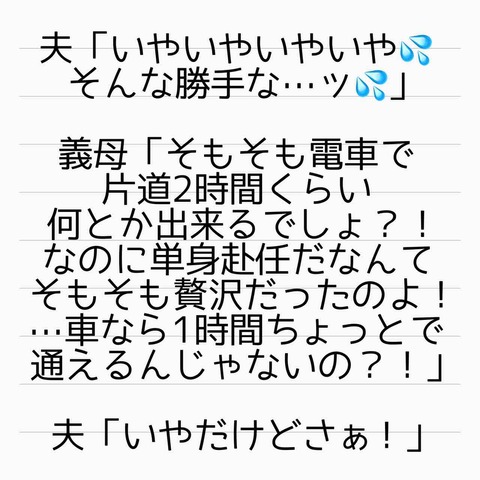 夫「いやいやいやいや💦
そんな勝手な…ッ💦」
義母「そもそも電車で
片道2時間くらい
何とか出来るでしょ？！
なのに単身赴任だなんて
そもそも贅沢だったのよ！
…車なら1時間ちょっとで
通えるんじゃないの？！」
夫「いやだけどさぁ！」